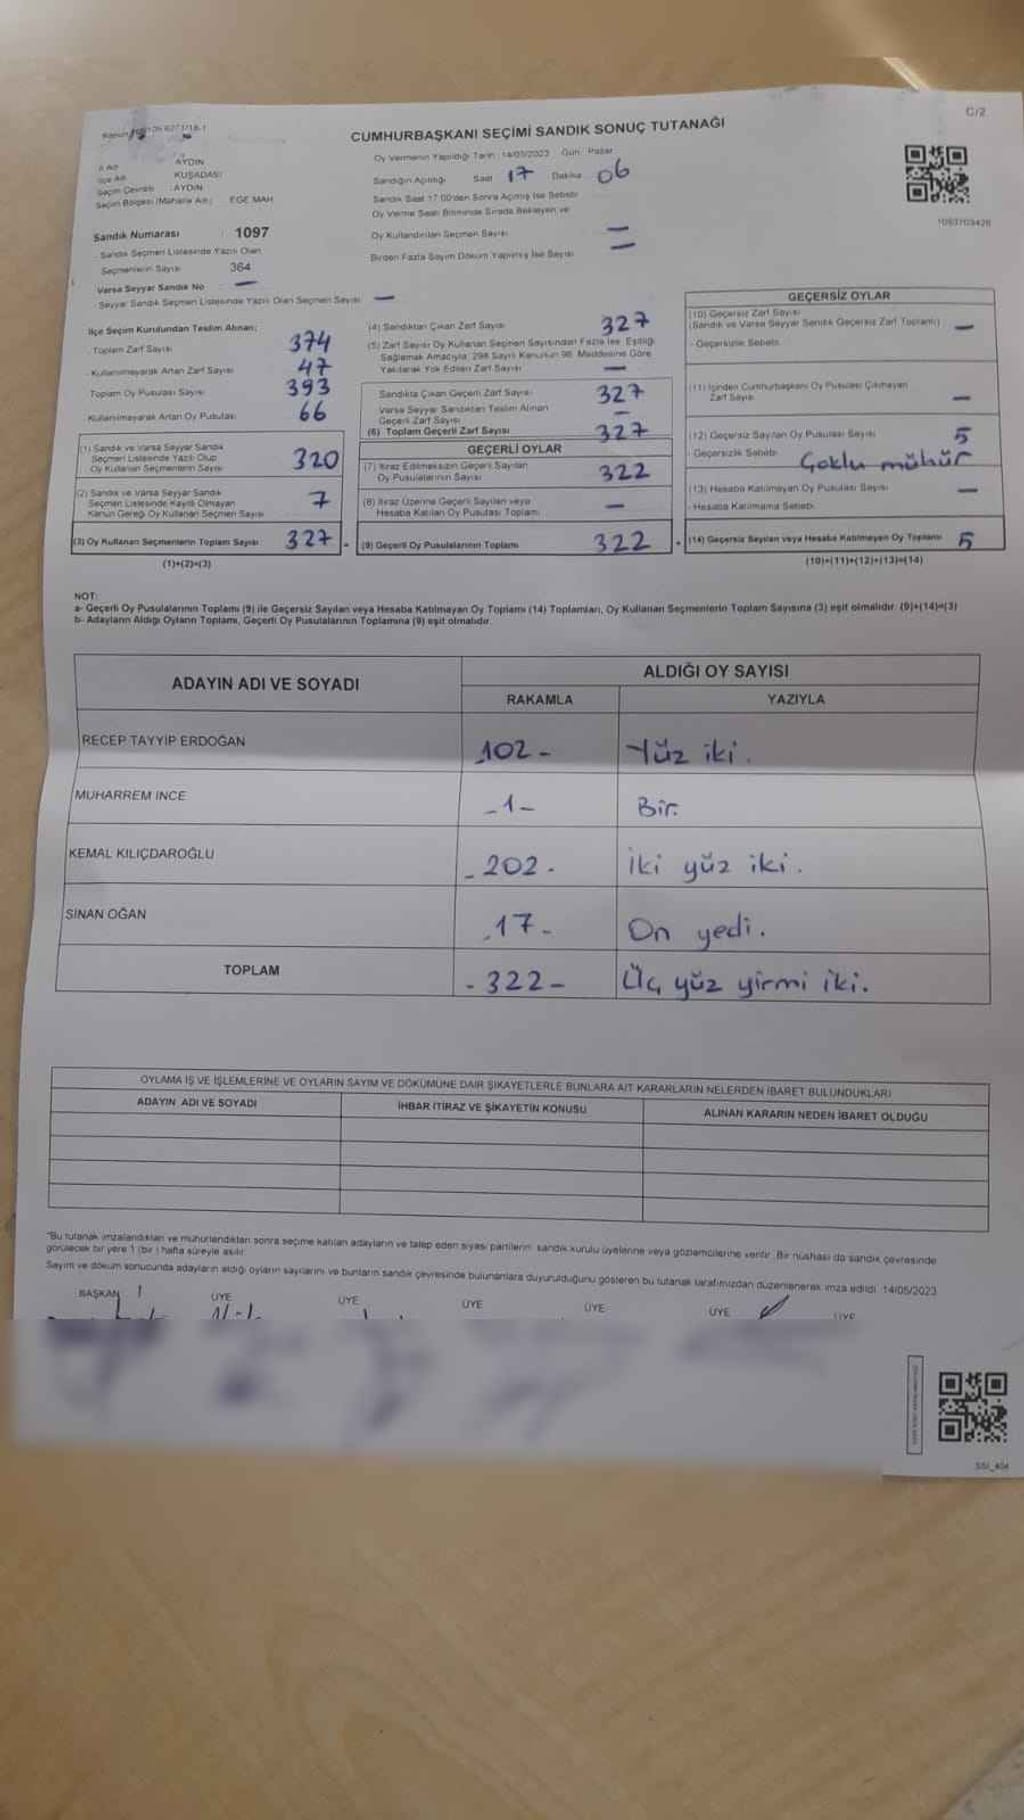 C/2
CUMHURBAŞKANI SEÇİMİ SANDIK SONUÇ TUTANAĞI
Oy Vermenin Yapıldığı Tarih: 14/05/2023 Gün: Pazar
AYDIN
KUŞADASI
Seçim Çevresi : AYDIN
Seçim Bölgesi (Mahalle Adı) EGE MAH
Sandığın Açıldığı Saat 17 Dakika 06
Sandık Saat 17.00'den Sonra Açılmış İse Sebebi
Oy Verme Saati Bitiminde Sırada Bekleyen ve
Oy Kullandırılan Seçmen Sayısı
Birden Fazla Sayım Döküm Yapılmış İse Sayısı
Sandık Numarası : 1097
Sandık Seçmen Listesinde Yazılı Olan
Seçmenlerin Sayısı 364
Varsa Seyyar Sandık No —
Seyyar Sandık Seçmen Listesinde Yazılı Olan Seçmen Sayısı —
İlçe Seçim Kurulundan Teslim Alınan;
- Toplam Zarf Sayısı 374
- Kullanılmayarak Artan Zarf Sayısı 47
Toplam Oy Pusulası Sayısı 393
- Kullanılmayarak Artan Oy Pusulası 66
(1) Sandık ve Varsa Seyyar Sandık
Seçmen Listesinde Yazılı Olup
Oy Kullanan Seçmenlerin Sayısı 320
(2) Sandık ve Varsa Seyyar Sandık
Seçmen Listesinde Kayıtlı Olmayan
Kanun Gereği Oy Kullanan Seçmen Sayısı 7
(3) Oy Kullanan Seçmenlerin Toplam Sayısı 327
(1)+(2)=(3)
(4) Sandıktan Çıkan Zarf Sayısı 327
(5) Zarf Sayısı Oy Kullanan Seçmen Sayısından Fazla İse, Eşitliği
Sağlamak Amacıyla; 298 Sayılı Kanunun 98. Maddesine Göre
Yakılarak Yok Edilen Zarf Sayısı —
Sandıkta Çıkan Geçerli Zarf Sayısı 327
Varsa Seyyar Sandıktan Teslim Alınan
Geçerli Zarf Sayısı —
(6) Toplam Geçerli Zarf Sayısı 327
GEÇERLİ OYLAR
(7) İtiraz Edilmeksizin Geçerli Sayılan
Oy Pusulalarının Sayısı 322
(8) İtiraz Üzerine Geçerli Sayılan veya
Hesaba Katılan Oy Pusulası Toplamı —
(9) Geçerli Oy Pusulalarının Toplamı 322
GEÇERSİZ OYLAR
(10) Geçersiz Zarf Sayısı
(Sandık ve Varsa Seyyar Sandık Geçersiz Zarf Toplamı) —
- Geçersizlik Sebebi:
(11) İçinden Cumhurbaşkanı Oy Pusulası Çıkmayan
Zarf Sayısı —
(12) Geçersiz Sayılan Oy Pusulası Sayısı 5
- Geçersizlik Sebebi: Çoklu mühür
(13) Hesaba Katılmayan Oy Pusulası Sayısı —
- Hesaba Katılmama Sebebi:
(14) Geçersiz Sayılan veya Hesaba Katılmayan Oy Toplamı 5
(10)+(11)+(12)+(13)=(14)
NOT:
a- Geçerli Oy Pusulalarının Toplamı (9) ile Geçersiz Sayılan veya Hesaba Katılmayan Oy Toplamı (14) Toplamları, Oy Kullanan Seçmenlerin Toplam Sayısına (3) eşit olmalıdır. (9)+(14)=(3)
b- Adayların Aldığı Oyların Toplamı, Geçerli Oy Pusulalarının Toplamına (9) eşit olmalıdır.
ADAYIN ADI VE SOYADI
ALDIĞI OY SAYISI
RAKAMLA YAZIYLA
RECEP TAYYİP ERDOĞAN 102- Yüz iki.
MUHARREM İNCE -1- Bir.
KEMAL KILIÇDAROĞLU -202- İki yüz iki.
SİNAN OĞAN 17- On yedi.
TOPLAM -322- Üç yüz yirmi iki.
OYLAMA İŞ VE İŞLEMLERİNE VE OYLARIN SAYIM VE DÖKÜMÜNE DAİR ŞİKAYETLERLE BUNLARA AİT KARARLARIN NELERDEN İBARET BULUNDUKLARI
ADAYIN ADI VE SOYADI İHBAR İTİRAZ VE ŞİKAYETİN KONUSU ALINAN KARARIN NEDEN İBARET OLDUĞU
"Bu tutanak imzalandıktan ve mühürlendikten sonra seçime katılan adayların ve talep eden siyasi partilerin sandık kurulu üyelerine veya gözlemcilerine verilir. Bir nüshası da sandık çevresinde
görülecek bir yere 1 (bir) hafta süreyle asılır.
Sayım ve döküm sonucunda adayların aldığı oyların sayılarını ve bunların sandık çevresinde bulunanlara duyurulduğunu gösteren bu tutanak tarafımızdan düzenlenerek imza edildi. 14/05/2023
BAŞKAN ÜYE ÜYE ÜYE ÜYE ÜYE ÜYE